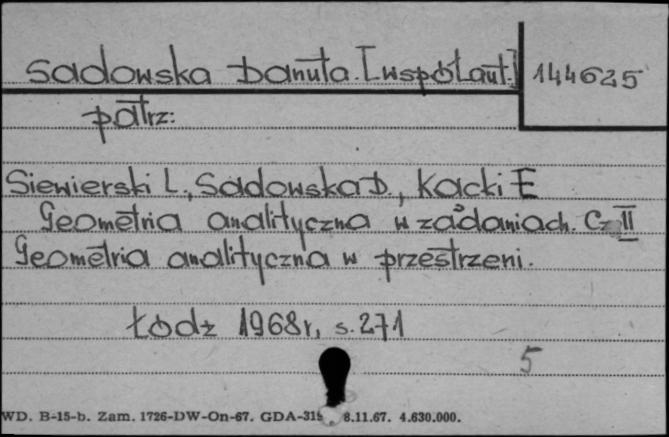 Sadowska Danuta. [współaut.] 144625
patrz:
Siewierski L., Sadowska D., Kącki E
Geometria analityczna w zadaniach. Cz II
Geometria analityczna w przestrzeni.
Łódź 1968r, s. 271
5
WD. B-15-b. Zam. 1726-DW-On-67. GDA-319 8.11.67. 4.630.000.